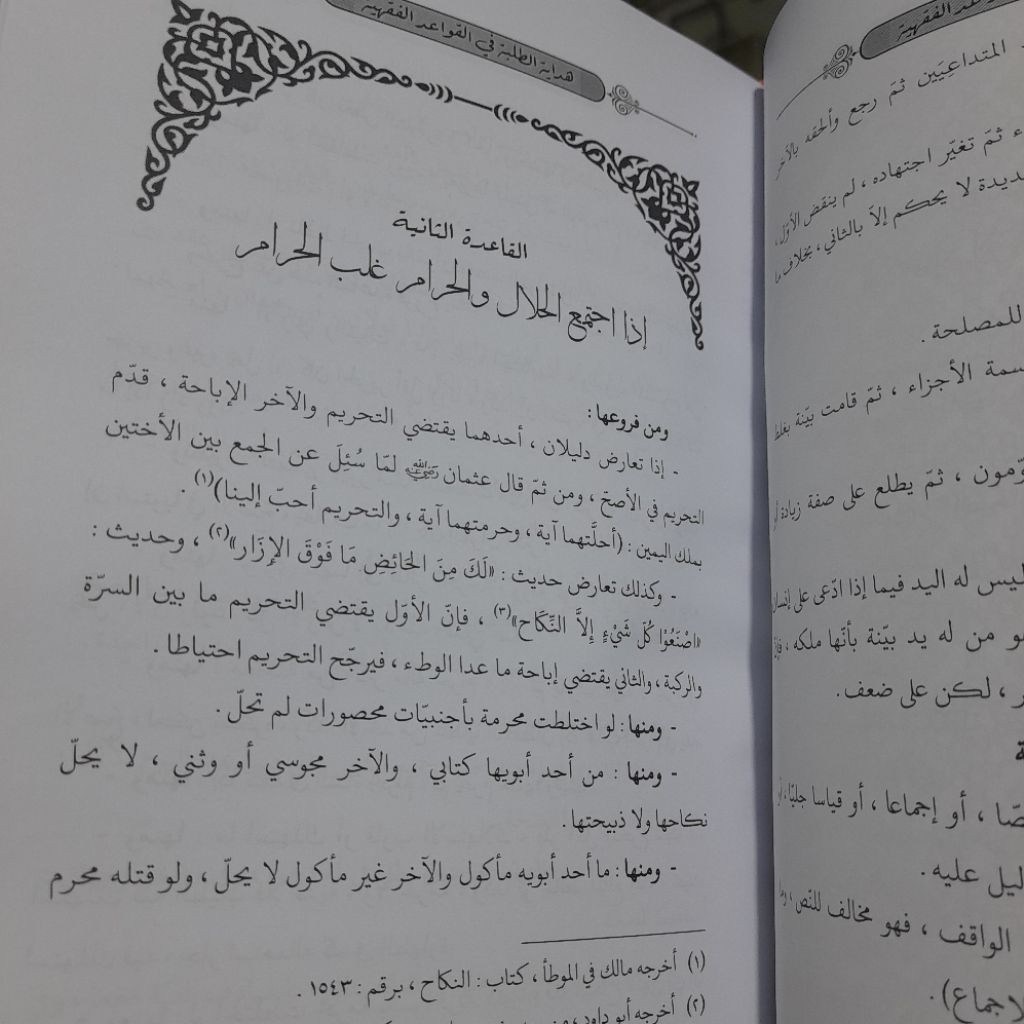 القواعد الفقهية
المتداعيَين ثمّ رجع وألحقه بالآخر
ثمّ تغيّر اجتهاده ، لم ينقض الأوّل ،
لا يحكم إلاّ بالثاني ، بخلاف ما
للمصلحة .
الأجزاء ، ثمّ قامت بيّنة بغلط
ثمّ يطلع على صفة زيادة أو
ليس له اليد فيما إذا ادّعى على إنسان
من له يد بيّنة بأنّها ملكه ،
، لكن على ضعف .
، أو إجماعا ، أو قياسا جليّا ، أو
عليه .
الواقف ، فهو مخالف للنّص ،
هداية الطلبة في القواعد الفقهية
القاعدة الثانية
إذا اجتمع الحلال والحرام غلب الحرام
ومن فروعها :
- إذا تعارض دليلان ، أحدهما يقتضي التحريم والآخر الإباحة ، قدّم
التحريم في الأصحّ ، ومن ثمّ قال عثمان رضي الله عنه لمّا سُئِلَ عن الجمع بين الأختين
بملك اليمين : (أحلَّتهما آية ، وحرمتهما آية ، والتحريم أحبّ إلينا)(١) .
- وكذلك تعارض حديث : «لَكَ مِنَ الحَائِضِ مَا فَوْقَ الإِزَار»(٢) ، وحديث :
«اصْنَعُوْا كُلّ شَيْءٍ إِلاَّ النِّكَاح»(٣) ، فإنّ الأوّل يقتضي التحريم ما بين السرّة
والركبة ، والثاني يقتضي إباحة ما عدا الوطء ، فيرجّح التحريم احتياطا .
- ومنها : لو اختلطت محرمة بأجنبيّات محصورات لم تحلّ .
- ومنها : من أحد أبويها كتابي ، والآخر مجوسي أو وثني ، لا يحلّ
نكاحها ولا ذبيحتها .
- ومنها : ما أحد أبويه مأكول والآخر غير مأكول لا يحلّ ، ولو قتله محرم
(١) أخرجه مالك في الموطأ ، كتاب : النكاح ، برقم : ١٥٤٣ .
(٢) أخرجه أبو داود